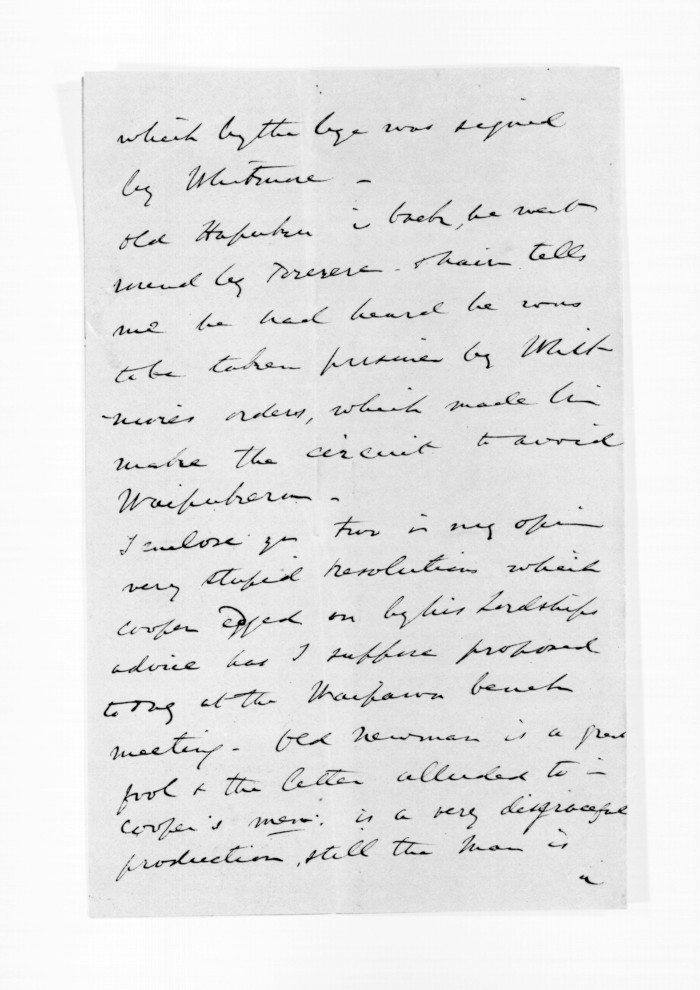 which by the bye was signed
by Whitmore -
old Hapuku is back, he went
round by Tererere. Hair tells
me he had heard he was
to be taken prisoner by Whit
mores orders, which made him
make the circuit to avoid
Waipukurau -
I enclose you two in my opinion
very stupid resolutions which
Cooper egged on by his Lordships
advice has I suppose proposed
today at the Waipawa bench
meeting - Old Newman is a great
fool & the letter alluded to in
Cooper's mem: is a very disgraceful
production, still the man is
a